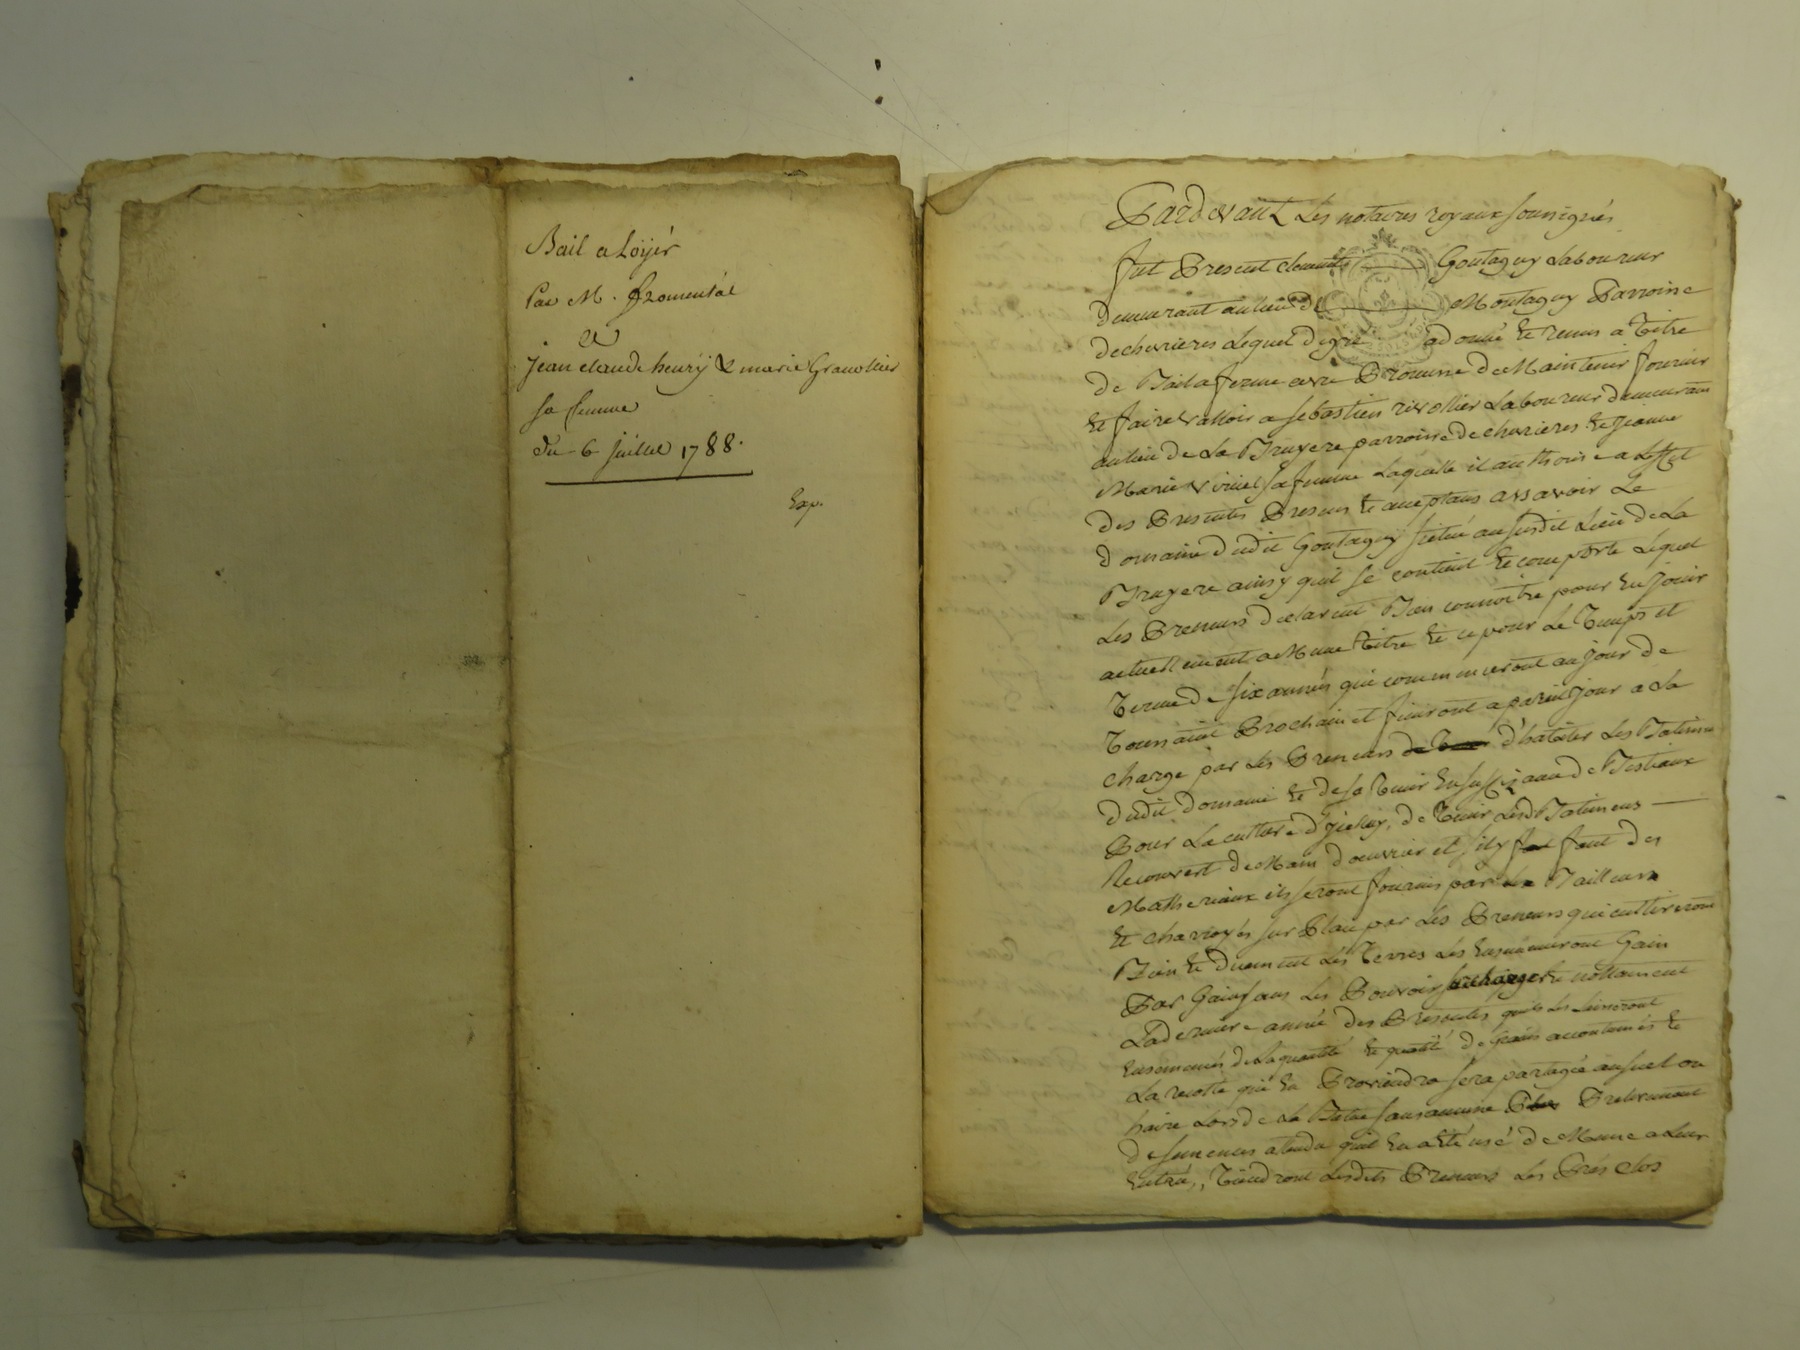 Bail a Loÿér
Par M. fromental
a
jean claude henrÿ & marie Granottier
sa femme
du 6 juillet 1788.
Exp.
Pardevant Les notaires royaux soussignés
fut Present clement Goutagny Laboureur
demeurant au lieu de Montagny Parroisse
de chevrieres Lequel degré a donné et remis a Titre
de Bail a ferme avec Promesse de Maintenir fournir
et faire valloir a sebastien rivollier Laboureur demeurant
au lieu de La Bruyere parroisse de chevrieres et jeanne
Marie sa femme Laquelle il authorise a Leffet
des Presentes Presens et acceptans assavoir Le
domaine dudit Goutagny situé au susdit Lieu de La
Bruyere ainsy quil se contient et comporte Lequel
Les Preneurs declarent Bien connoitre pour en jouir
actuellement a Meme Titre et ce pour Le Temps et
Terme de six années qui commenceront au jour de
Toussaint Prochain et finiront a pareil jour a La
charge par Les Preneurs d'habiter Les Batimens
dudit domaine et de le Tenir en suffizance de Bestiaux
Pour La culture d'jceluy, de Tenir Lesd Batimens
Recouvert de Main d'oeuvrier et sil y faut des
Matheriaux ils seront fournis par Bailleur
et charroyés sur Place par Les Preneurs qui cultiveront
Bien et duement Les Terres Les ensemenceront Gain
Par Gain sans Les Pouvoir surcharger et nottament
La derniere année des Presentes quils Les Laisseront
ensemencés de La quantité et qualité de Grains accoutumés et
La recolte qui en Proviendra sera partagée au suel ou
haire Lors de La Batue sans aucune Prelevement
de semences atendu quil en a été usé de Meme a Leur
entrée, Tiendront Lesdits Preneurs Les Prés clos